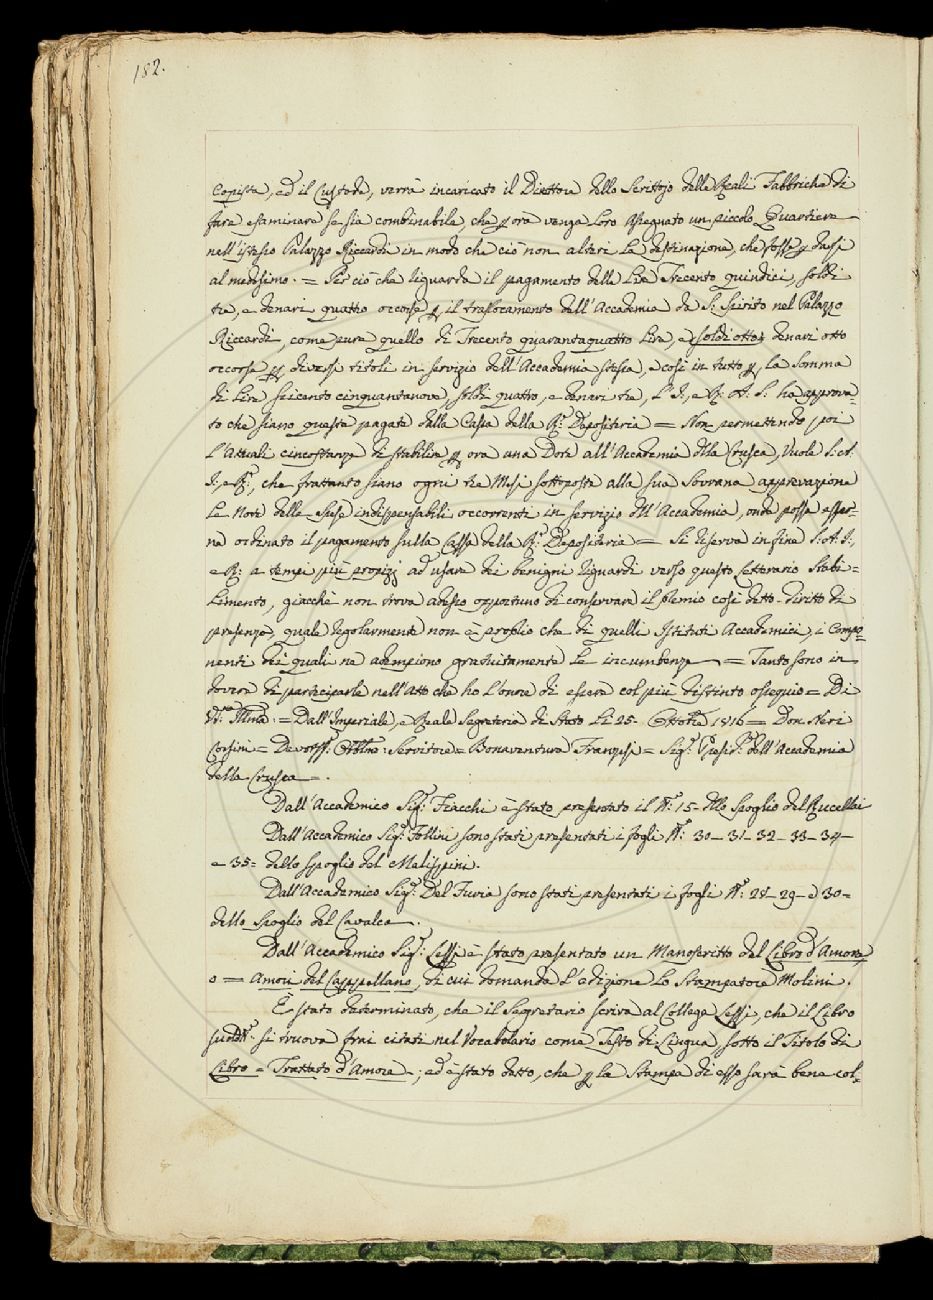 182.
Copista, ed il Custode, verrà incaricato il Direttore dello Scrittojo delle Reali Fabbriche di
fare esaminare se sia combinabile, che p ora venga loro assegnato un piccolo Quartiere
nell'istesso Palazzo Riccardi in modo che ciò non alteri la destinazione, che fosse p darsi
al medesimo. = Per ciò che riguarda il pagamento delle Lire Trecento quindici, soldi
tre, e denari quattro occorse p il traslocamento dell'Accademia da S: Spirito nel Palazzo
Riccardi, come pure quello di Trecento quarantaquattro Lire, e soldi otto, denari otto
occorse p diversi titoli in servizio dell'Accademia stessa, e così in tutto p la somma
di Lire seicento cinquantanove, soldi quattro, e denari tre, L'I., e R. A. S. ha approva=
to che siano queste pagate dalla Cassa della R: Depositeria = Non permettendo poi
l'attuali circostanze di stabilire p ora una Dote all'Accademia della Crusca, Vuole S. A.
I., e R:, che frattanto siano ogni tre Mesi sottoposte alla sua Sovrana approvazione
le Note delle Spese indispensabili occorrenti in servizio dell'Accademia, onde possa esser=
ne ordinato il pagamento sulla Cassa della R: Depositeria = Si riserva in fine S. A. I.,
e R: a tempi più propizj ad usare dei benigni riguardi verso questo Letterario Stabi=
limento, giacchè non trova adesso opportuno di conservare il premio così detto diritto di
presenza, quale regolarmente non è proprio che di quelli Istituti Accademici, i Compo=
nenti dei quali ne adempiono gratuitamente le incumbenze = Tanto sono in
dovere di partecipare nell'atto che ho l'onore di essere col più distinto ossequio = Di
VS. Illma. = Dall'Imperiale, e Reale Segreteria di Stato Li 25. Ottobre 1816 = Don Neri
Corsini = Devotss. Obblmo: Servitore = Bonaventura Franzesi = Sig: Presid: dell'Accademia
della Crusca = .
Dall'Accademico Sig: Fiacchi è stato presentato il N: 15 dello Spoglio del Rucellai
Dall'Accademico Sig: Follini sono stati presentati i fogli N: 30 - 31 - 32 - 33 - 34 -
e 35 = dello Spoglio del Malispini.
Dall'Accademico Sig: Del Furia sono stati presentati i fogli N: 28 - 29 - e 30 =
dello Spoglio del Cavalca.
Dall'Accademico Sig: Lessi è stato presentato un Manoscritto del Libro d'Amore,
o = Amori del Cappellano, di cui domanda l'edizione lo Stampatore Molini.
È stato determinato, che il Segretario scriva al Collega Lessi, che il Libro
sudd: si truova frai citati nel Vocabolario come Testo di Lingua, sotto il Titolo di
Libro = Trattato d'Amore; ed è stato detto, che p la Stampa di esso sarà bene col=